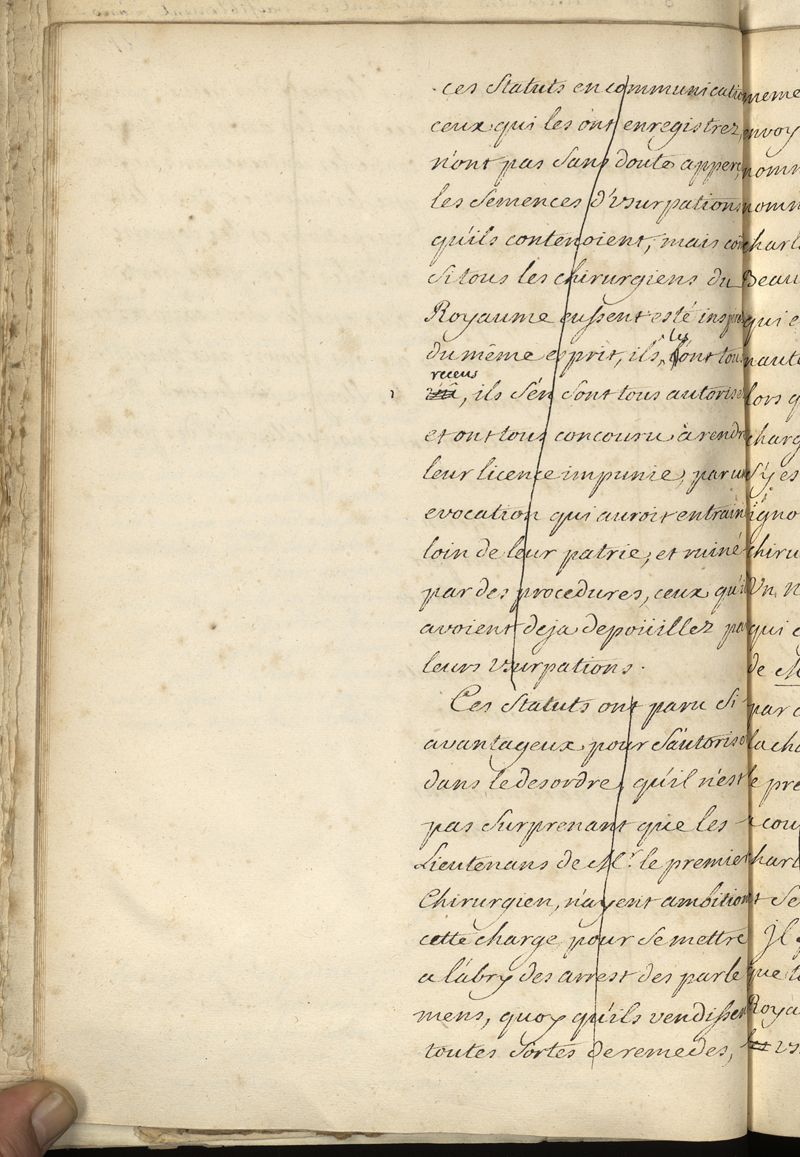 ces Statuts en communication
ceux qui les ont enregistrez,
n'ont pas sans doute apperç
les semences d'usurpations
qu'ils contenoient, mais com
si tous les chirurgiens du
Royaume eussent esté inspirés
du même esprit, ils les ont tous
receus, ils s'en sont tous autorisez
et ont tous concouru à rendre
leur licence impunie, par une
evocation qui auroit entrainé
loin de leur patrie, et ruiné
par des procedures, ceux qu'ils
avoient deja depoüillez par
leurs usurpations.
Ces Statuts ont paru si
avantageux pour s'autoriser
dans le desordre, qu'il n'est
pas surprenant que les
Lieutenans de Mr. le premier
Chirurgien, n'ayent ambitionn
cette charge pour se mettre
a l'abry des arrest des parle
mens, quoy qu'ils vendissent
toutes sortes de remedes,